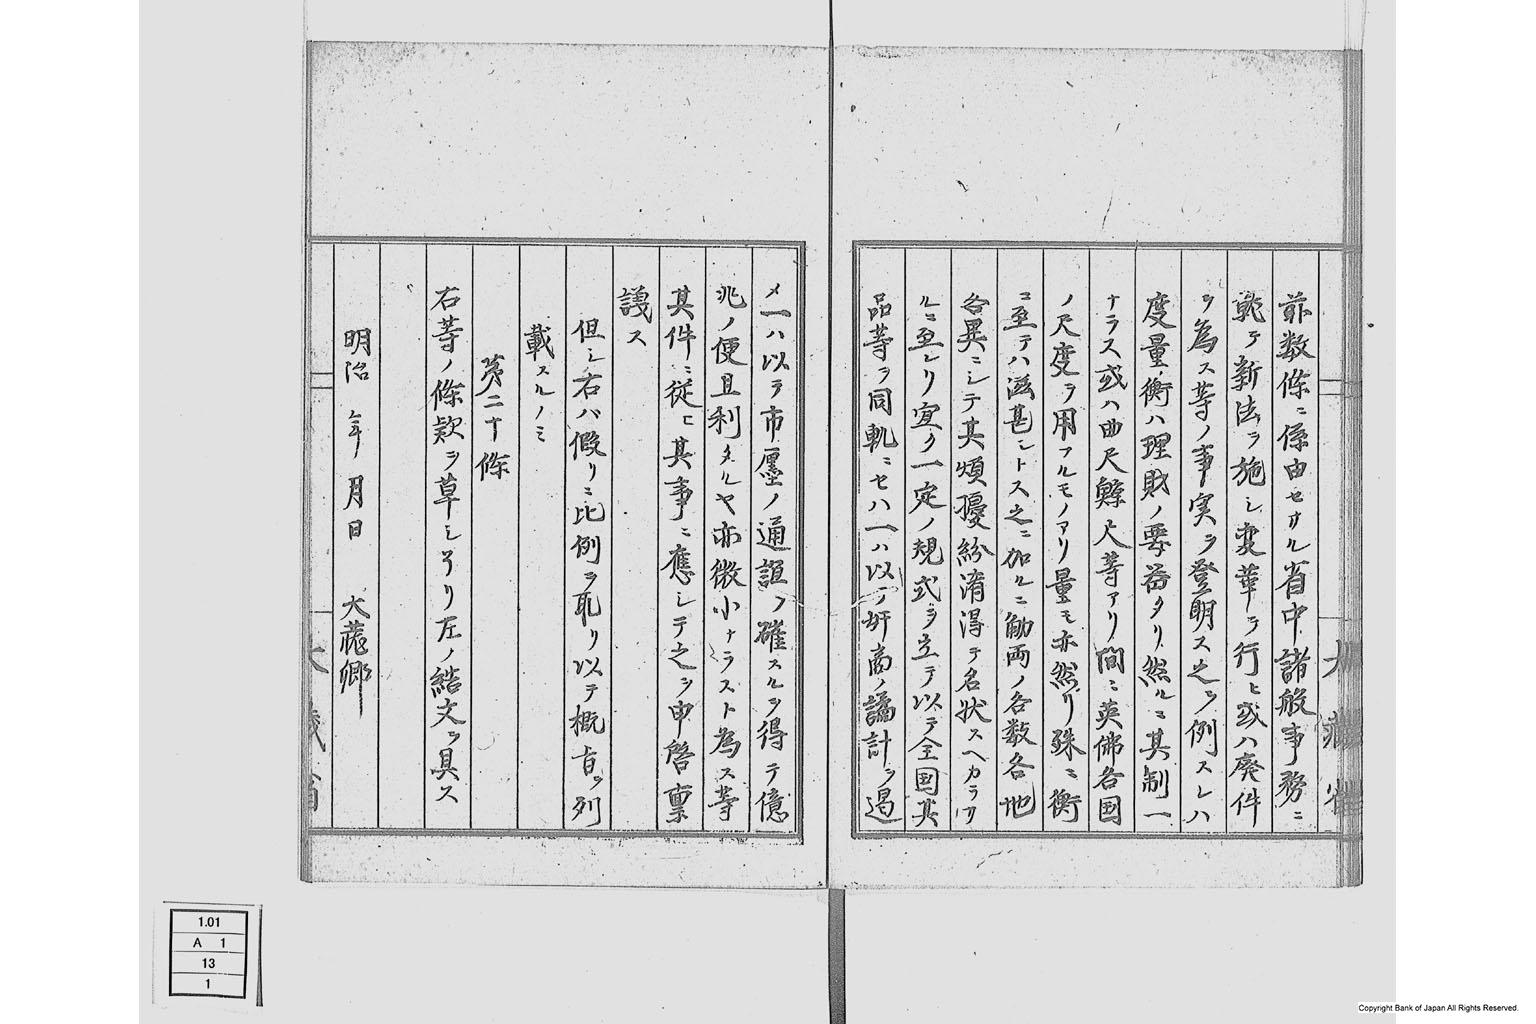 前数條ニ係由セサル省中諸般事務ニ
就テ新法ヲ施シ変革ヲ行ヒ或ハ廃件
ヲ為ス等ノ事実ヲ登明ス之ヲ例スレハ
度量衡ハ理財ノ要器タリ然ルニ其制一
ナラス或ハ曲尺鯨尺等アリ間ニ英佛各国
ノ尺度ヲ用フルモノアリ量モ亦然リ殊ニ衡
ニ至テハ滋甚シトス之ニ加ルニ觔両ノ各数各地
各異ニシテ其煩擾紛淆得テ名状スヘカラサ
ルニ至レリ宜ク一定ノ規式ヲ立テ以テ全国其
品等ヲ同軌ニセハ一ハ以テ奸商ノ譎計ヲ遏
メ一ハ以テ市廛ノ通誼ノ確スルヲ得テ億
兆ノ便且利タルヤ亦微小ナラスト為ス等
其件ニ従ヒ其事ニ應シテ之ヲ申啓稟
議ス
但シ右ハ假リニ比例ヲ取リ以テ概旨ヲ列
載スルノミ
第二十條
右等ノ條款ヲ草シ了リ左ノ結文ヲ具ス
明治 年 月 日 大蔵卿
大蔵省
大蔵省
1.01
A 1
13
1
Copyright Bank of Japan All Rights Reserved.